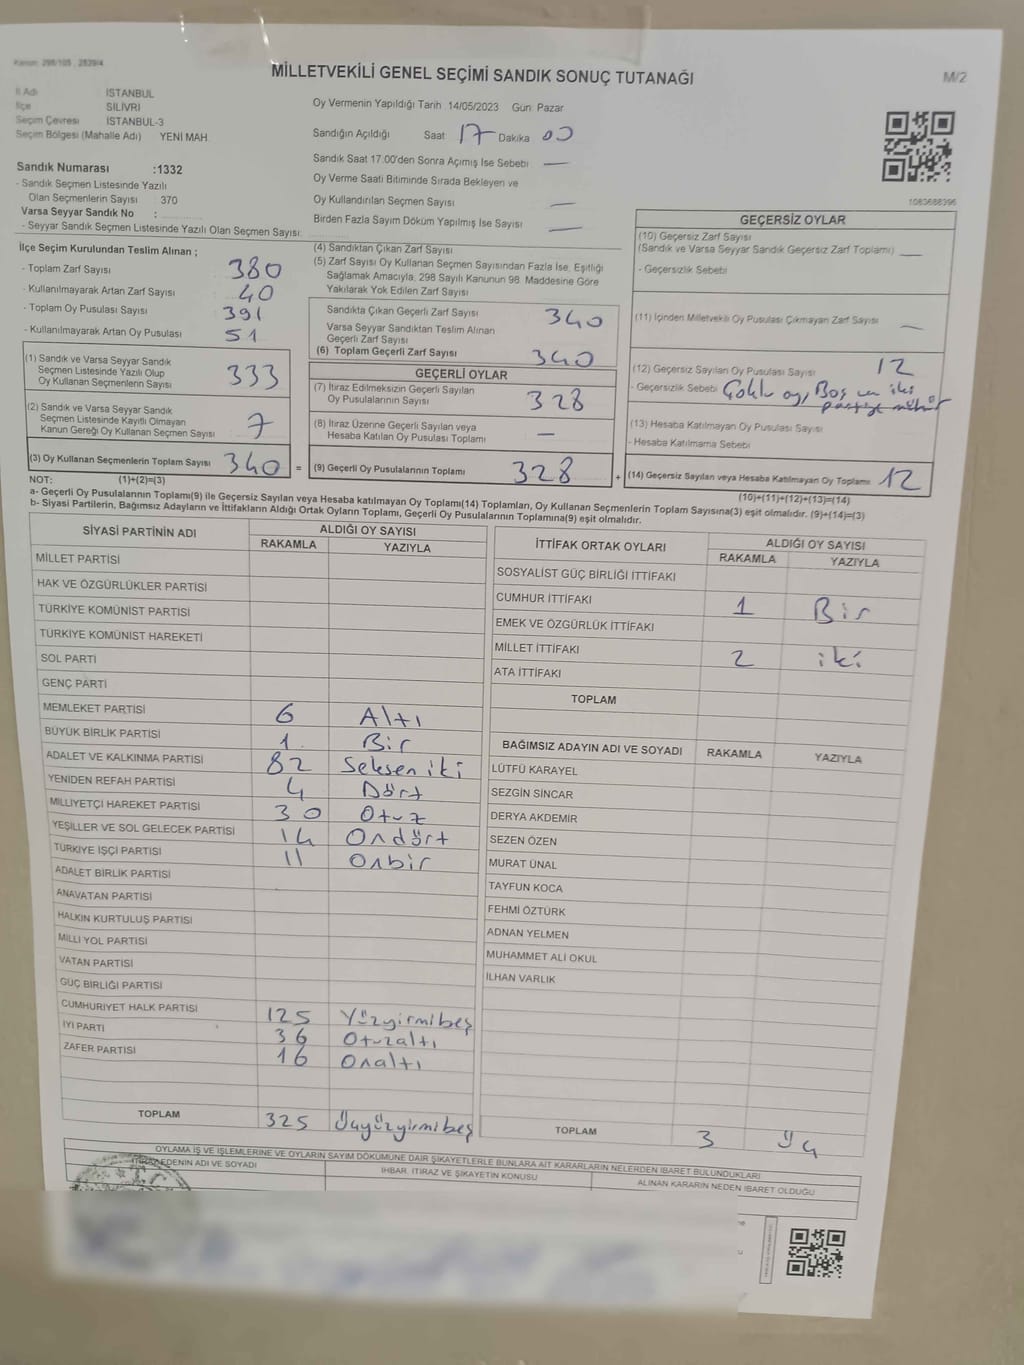 Kanun: 298/105, 2839/4
MİLLETVEKİLİ GENEL SEÇİMİ SANDIK SONUÇ TUTANAĞI
M/2
İl Adı İSTANBUL
İlçe SİLİVRİ
Seçim Çevresi İSTANBUL-3
Seçim Bölgesi (Mahalle Adı) YENİ MAH.
Oy Vermenin Yapıldığı Tarih 14/05/2023 Gün: Pazar
Sandığın Açıldığı Saat 17 Dakika 00
Sandık Saat 17.00'den Sonra Açımış İse Sebebi —
Oy Verme Saati Bitiminde Sırada Bekleyen ve
Oy Kullandırılan Seçmen Sayısı —
Birden Fazla Sayım Döküm Yapılmış İse Sayısı —
1083688396
Sandık Numarası :1332
- Sandık Seçmen Listesinde Yazılı
Olan Seçmenlerin Sayısı 370
Varsa Seyyar Sandık No :
- Seyyar Sandık Seçmen Listesinde Yazılı Olan Seçmen Sayısı:
İlçe Seçim Kurulundan Teslim Alınan ;
- Toplam Zarf Sayısı 380
- Kullanılmayarak Artan Zarf Sayısı 40
- Toplam Oy Pusulası Sayısı 391
- Kullanılmayarak Artan Oy Pusulası 51
(1) Sandık ve Varsa Seyyar Sandık
Seçmen Listesinde Yazılı Olup
Oy Kullanan Seçmenlerin Sayısı 333
(2) Sandık ve Varsa Seyyar Sandık
Seçmen Listesinde Kayıtlı Olmayan
Kanun Gereği Oy Kullanan Seçmen Sayısı 7
(3) Oy Kullanan Seçmenlerin Toplam Sayısı 340 =
(4) Sandıktan Çıkan Zarf Sayısı
(5) Zarf Sayısı Oy Kullanan Seçmen Sayısından Fazla İse, Eşitliği
Sağlamak Amacıyla, 298 Sayılı Kanunun 98. Maddesine Göre
Yakılarak Yok Edilen Zarf Sayısı
Sandıkta Çıkan Geçerli Zarf Sayısı 340
Varsa Seyyar Sandıktan Teslim Alınan
Geçerli Zarf Sayısı
(6) Toplam Geçerli Zarf Sayısı 340
GEÇERLİ OYLAR
(7) İtiraz Edilmeksizin Geçerli Sayılan
Oy Pusulalarının Sayısı 328
(8) İtiraz Üzerine Geçerli Sayılan veya
Hesaba Katılan Oy Pusulası Toplamı —
(9) Geçerli Oy Pusulalarının Toplamı 328 +
GEÇERSİZ OYLAR
(10) Geçersiz Zarf Sayısı
(Sandık ve Varsa Seyyar Sandık Geçersiz Zarf Toplamı) —
- Geçersizlik Sebebi
(11) İçinden Milletvekili Oy Pusulası Çıkmayan Zarf Sayısı —
(12) Geçersiz Sayılan Oy Pusulası Sayısı 12
- Geçersizlik Sebebi Çoklu oy, Boş ve iki
partiye mühür
(13) Hesaba Katılmayan Oy Pusulası Sayısı
- Hesaba Katılmama Sebebi
(14) Geçersiz Sayılan veya Hesaba Katılmayan Oy Toplamı 12
NOT: (1)+(2)=(3)
(10)+(11)+(12)+(13)=(14)
a- Geçerli Oy Pusulalarının Toplamı(9) ile Geçersiz Sayılan veya Hesaba katılmayan Oy Toplamı(14) Toplamları, Oy Kullanan Seçmenlerin Toplam Sayısına(3) eşit olmalıdır. (9)+(14)=(3)
b- Siyasi Partilerin, Bağımsız Adayların ve İttifakların Aldığı Ortak Oyların Toplamı, Geçerli Oy Pusulalarının Toplamına(9) eşit olmalıdır.
SİYASİ PARTİNİN ADI ALDIĞI OY SAYISI
RAKAMLA YAZIYLA
MİLLET PARTİSİ
HAK VE ÖZGÜRLÜKLER PARTİSİ
TÜRKİYE KOMÜNİST PARTİSİ
TÜRKİYE KOMÜNİST HAREKETİ
SOL PARTİ
GENÇ PARTİ
MEMLEKET PARTİSİ 6 Altı
BÜYÜK BİRLİK PARTİSİ 1 Bir
ADALET VE KALKINMA PARTİSİ 82 Seksen iki
YENİDEN REFAH PARTİSİ 4 Dört
MİLLİYETÇİ HAREKET PARTİSİ 30 Otuz
YEŞİLLER VE SOL GELECEK PARTİSİ 14 Ondört
TÜRKİYE İŞÇİ PARTİSİ 11 Onbir
ADALET BİRLİK PARTİSİ
ANAVATAN PARTİSİ
HALKIN KURTULUŞ PARTİSİ
MİLLİ YOL PARTİSİ
VATAN PARTİSİ
GÜÇ BİRLİĞİ PARTİSİ
CUMHURİYET HALK PARTİSİ 125 Yüzyirmibeş
İYİ PARTİ 36 Otuzaltı
ZAFER PARTİSİ 16 Onaltı
TOPLAM 325 Üçyüzyirmibeş
İTTİFAK ORTAK OYLARI ALDIĞI OY SAYISI
RAKAMLA YAZIYLA
SOSYALİST GÜÇ BİRLİĞİ İTTİFAKI
CUMHUR İTTİFAKI 1 Bir
EMEK VE ÖZGÜRLÜK İTTİFAKI
MİLLET İTTİFAKI 2 iki
ATA İTTİFAKI
TOPLAM
BAĞIMSIZ ADAYIN ADI VE SOYADI RAKAMLA YAZIYLA
LÜTFÜ KARAYEL
SEZGİN SİNCAR
DERYA AKDEMİR
SEZEN ÖZEN
MURAT ÜNAL
TAYFUN KOCA
FEHMİ ÖZTÜRK
ADNAN YELMEN
MUHAMMET ALİ OKUL
İLHAN VARLIK
TOPLAM 3 Üç
OYLAMA İŞ VE İŞLEMLERİNE VE OYLARIN SAYIM DÖKÜMÜNE DAİR ŞİKAYETLERLE BUNLARA AİT KARARLARIN NELERDEN İBARET BULUNDUKLARI
EDENİN ADI VE SOYADI
İHBAR, İTİRAZ VE ŞİKAYETİN KONUSU
ALINAN KARARIN NEDEN İBARET OLDUĞU